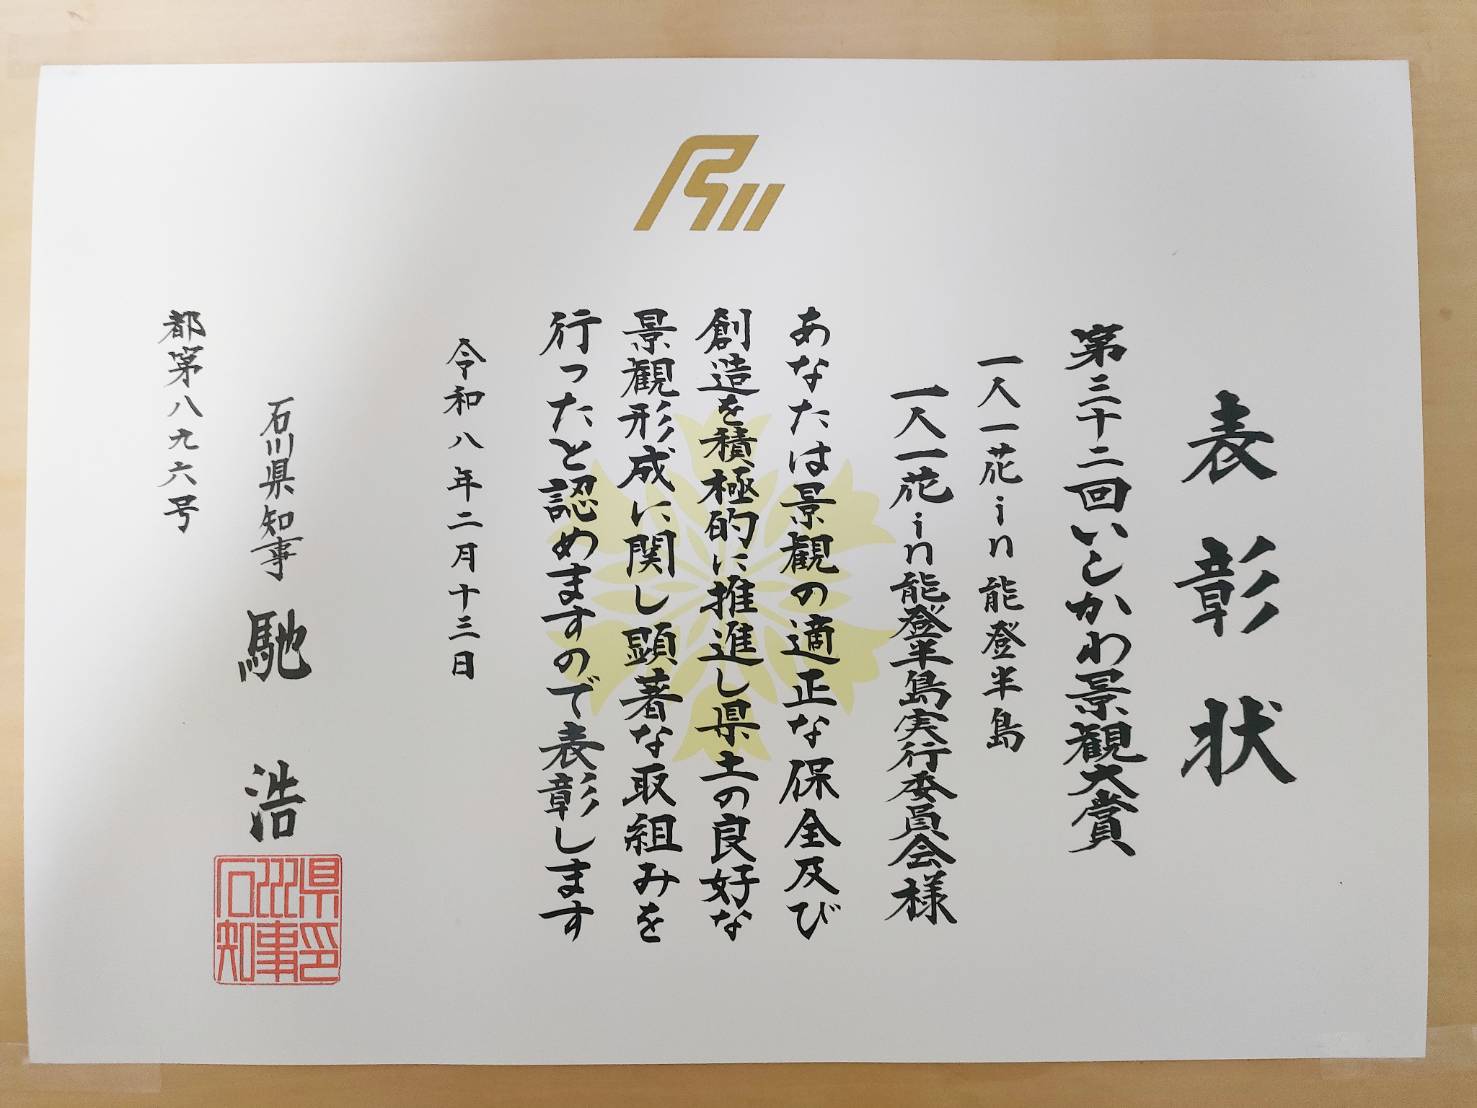 表彰状
第三十二回いしかわ景観大賞
一人一花in能登半島
一人一花in能登半島実行委員会様
あなたは景観の適正な保全及び
創造を積極的に推進し県土の良好な
景観形成に関し顕著な取組みを
行ったと認めますので表彰します
令和八年二月十三日
石川県知事 馳 浩
都第八九六号
石川県知事印